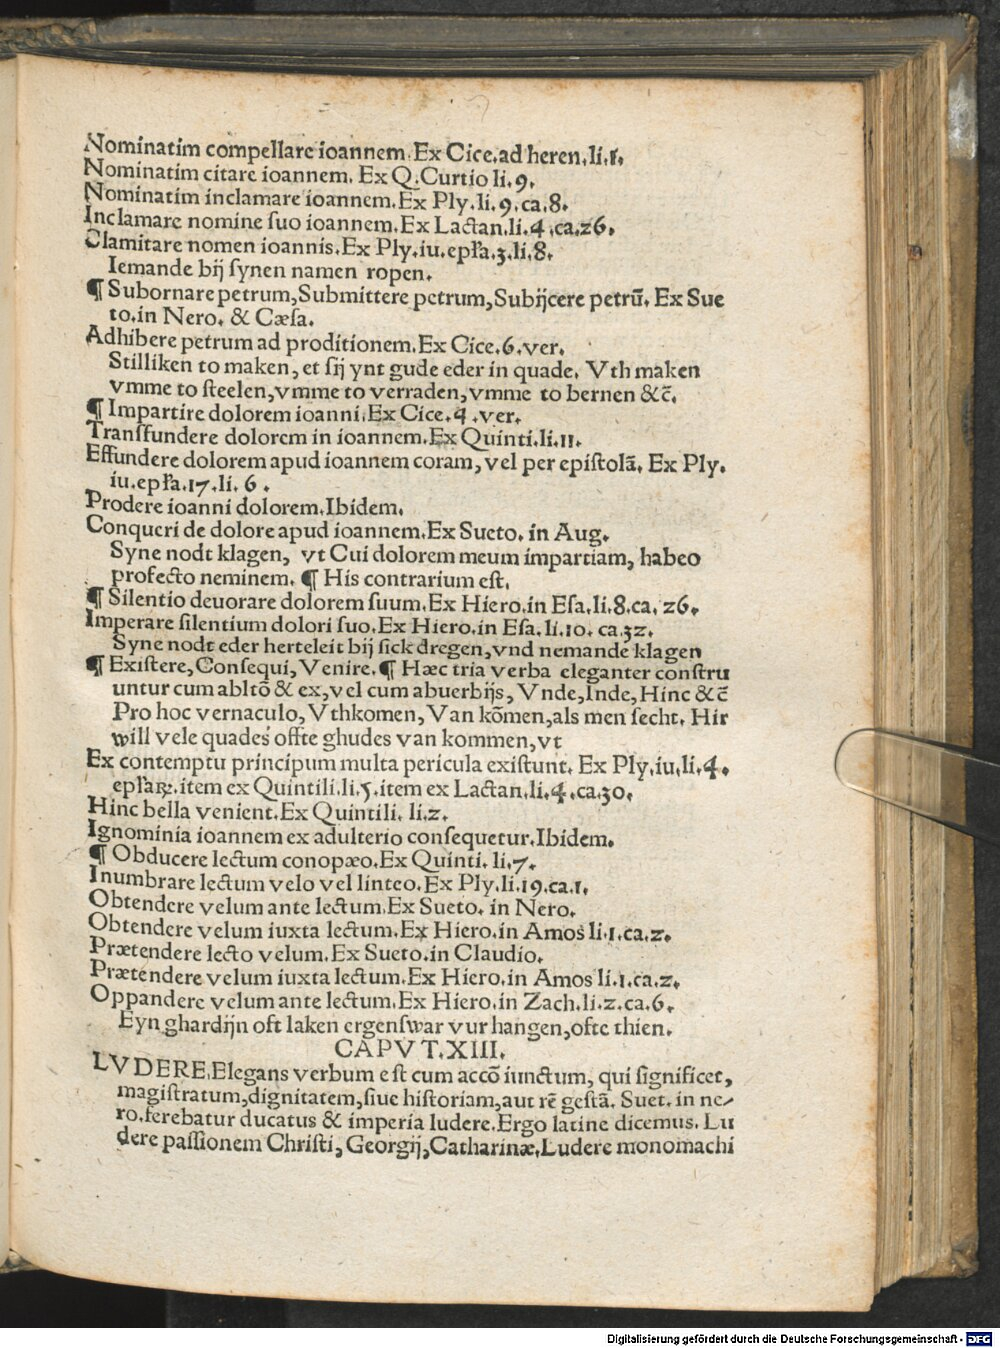 Nominatim compellare ioannem.Ex Cice.ad heren.li.1.
Nominatim citare ioannem. Ex Q.Curtio li.9.
Nominatim inclamare ioannem.Ex Ply.li.9.ca.8.
Inclamare nomine ſuo ioannem.Ex Lactan.li.4.ca.26.
Clamitare nomen ioannis.Ex Ply.iu.epła.3.li.8.
Iemande bij ſynen namen ropen.
¶ Subornare petrum,Submittere petrum,Subijcere petrū. Ex Sue
to.in Nero. & Cæſa.
Adhibere petrum ad proditionem.Ex Cice.6.ver.
Stilliken to maken, et ſij ynt gude eder in quade. Vth maken
vmme to ſteelen,vmme to verraden,vmme to bernen &c̄.
¶ Impartire dolorem ioanni.Ex Cice.4.ver.
Tranſfundere dolorem in ioannem.Ex Quinti.li.11.
Effundere dolorem apud ioannem coram,vel per epiſtolā. Ex Ply.
iu.epła.17.li.6.
Prodere ioanni dolorem.Ibidem.
Conqueri de dolore apud ioannem.Ex Sueto. in Aug.
Syne nodt klagen, vt Cui dolorem meum impartiam, habeo
profecto neminem. ¶ His contrarium eſt.
¶ Silentio deuorare dolorem ſuum.Ex Hiero.in Eſa.li.8.ca. 26.
Imperare ſilentium dolori ſuo.Ex Hiero.in Eſa.li.10. ca.32.
Syne nodt eder herteleit bij ſick dregen,vnd nemande klagen
¶ Exiſtere,Conſequi,Venire.¶ Hæc tria verba eleganter conſtru
untur cum abltō & ex,vel cum abuerbijs, Vnde,Inde,Hinc &c̄
Pro hoc vernaculo,Vthkomen,Van kōmen,als men ſecht. Hir
will vele quades offte ghudes van kommen,vt
Ex contemptu principum multa pericula exiſtunt. Ex Ply.iu.li.4.
epłaꝝ.item ex Quintili.li.5.item ex Lactan.li.4.ca.30.
Hinc bella venient.Ex Quintili. li.2.
Ignominia ioannem ex adulterio conſequetur.Ibidem.
¶ Obducere lectum conopæo.Ex Quinti. li.7.
Inumbrare lectum velo vel linteo.Ex Ply.li.19.ca.1.
Obtendere velum ante lectum.Ex Sueto. in Nero.
Obtendere velum iuxta lectum.Ex Hiero.in Amos li.1.ca.2.
Prætendere lecto velum.Ex Sueto.in Claudio.
Prætendere velum iuxta lectum.Ex Hiero.in Amos li.1.ca.2.
Oppandere velum ante lectum.Ex Hiero.in Zach.li.2.ca.6.
Eyn ghardijn oft laken ergenſwar vur hangen,ofte thien.
CAPVT.XIII.
LVDERE.Elegans verbum eſt cum accō iunctum, qui ſignificet,
magiſtratum,dignitatem,ſiue hiſtoriam,aut rē geſtā. Suet. in ne-
ro.ferebatur ducatus & imperia ludere.Ergo latine dicemus. Lu
dere paſſionem Chriſti,Georgij,Catharinæ.Ludere monomachi
Digitalisierung gefördert durch die Deutsche Forschungsgemeinschaft - DFG